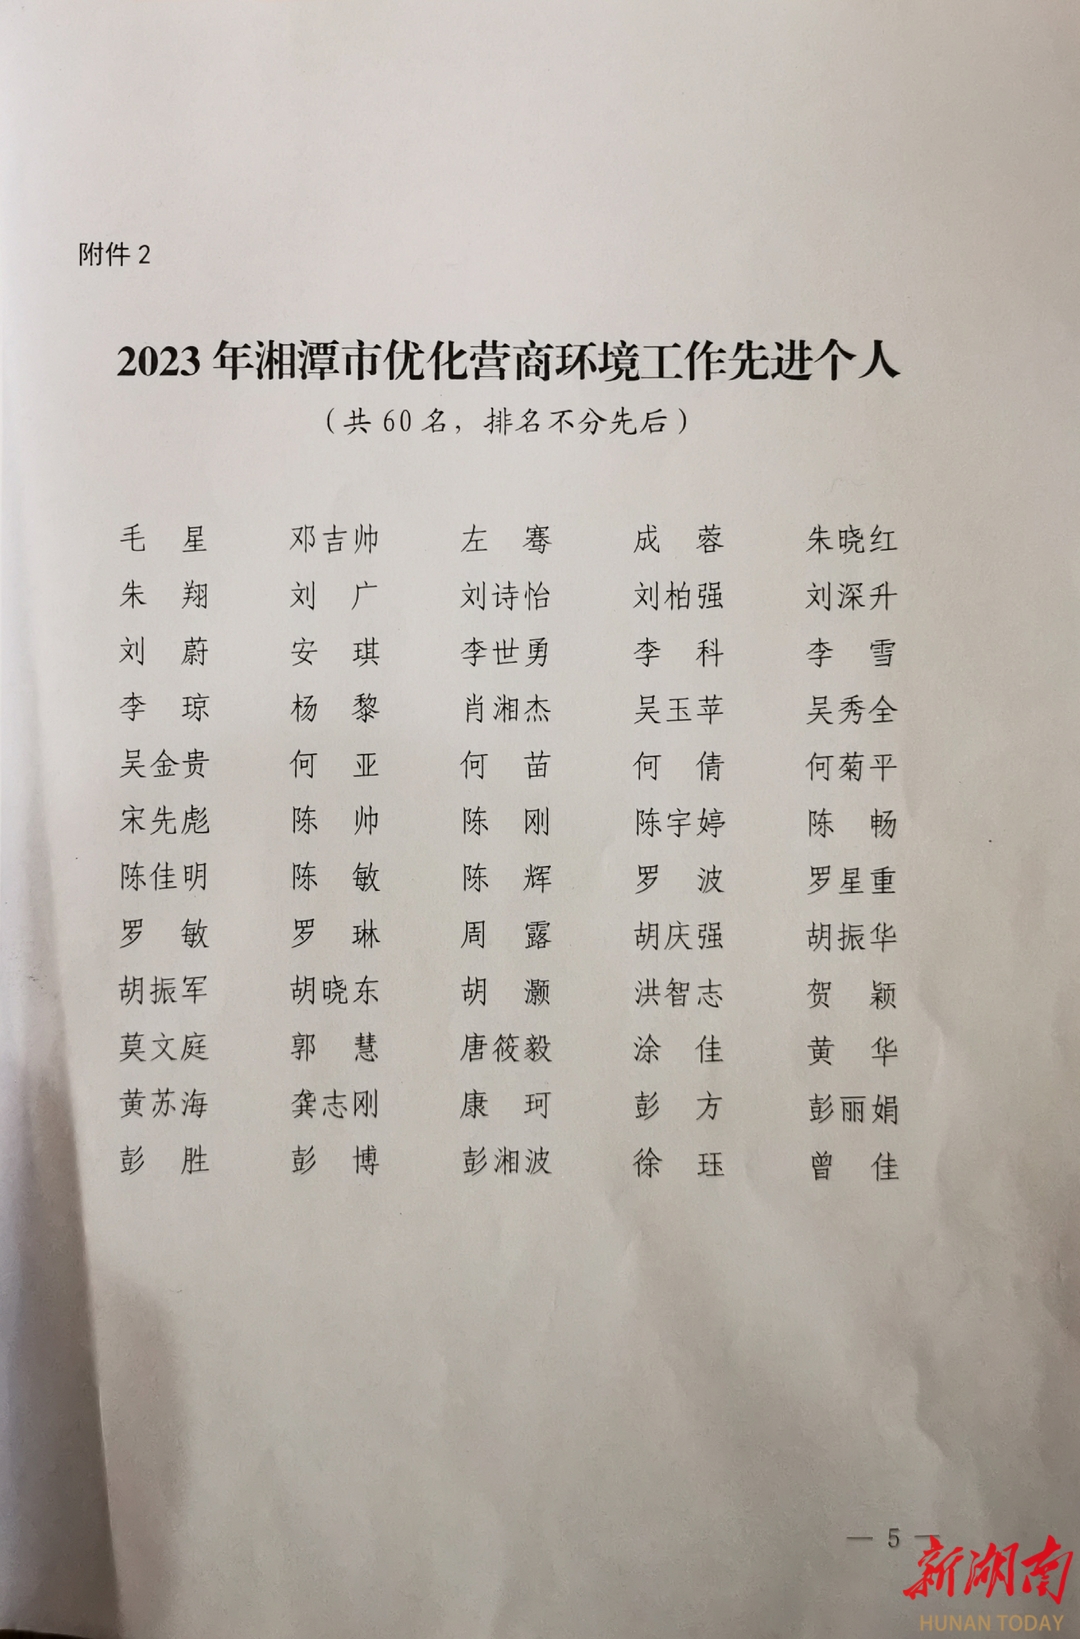 附件 2
2023 年湘潭市优化营商环境工作先进个人
（共 60 名，排名不分先后）
毛 星 邓吉帅 左 骞 成 蓉 朱晓红
朱 翔 刘 广 刘诗怡 刘柏强 刘深升
刘 蔚 安 琪 李世勇 李 科 李 雪
李 琼 杨 黎 肖湘杰 吴玉苹 吴秀全
吴金贵 何 亚 何 苗 何 倩 何菊平
宋先彪 陈 帅 陈 刚 陈宇婷 陈 畅
陈佳明 陈 敏 陈 辉 罗 波 罗星重
罗 敏 罗 琳 周 露 胡庆强 胡振华
胡振军 胡晓东 胡 灏 洪智志 贺 颖
莫文庭 郭 慧 唐筱毅 涂 佳 黄 华
黄苏海 龚志刚 康 珂 彭 方 彭丽娟
彭 胜 彭 博 彭湘波 徐 珏 曾 佳
— 5 —
新湖南
HUNAN TODAY